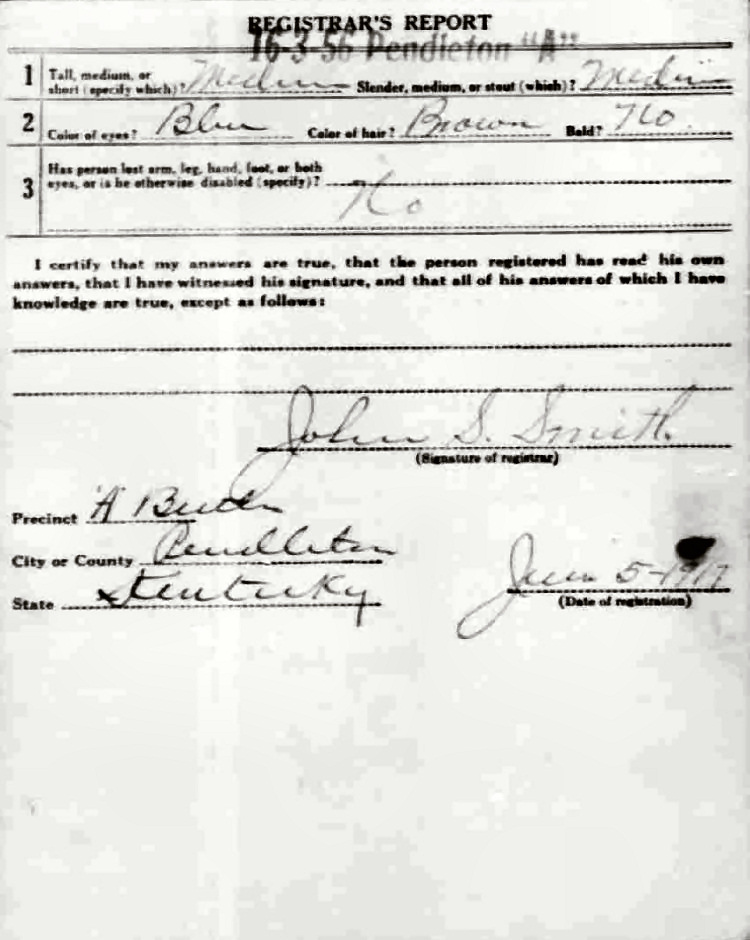 REGISTRAR'S REPORT
16-3-56 Pendleton "A"
1 Tall, medium, or
short (specify which)? Medium Slender, medium, or stout (which)? Medium
2 Color of eyes? Blue Color of hair? Brown Bald? No
3 Has person lost arm, leg, hand, foot, or both
eyes, or is he otherwise disabled (specify)?
No
I certify that my answers are true, that the person registered has read his own
answers, that I have witnessed his signature, and that all of his answers of which I have
knowledge are true, except as follows:
John S. Smith
(Signature of registrar)
Precinct A Butler
City or County Pendleton
State Kentucky
June 5-1917
(Date of registration)